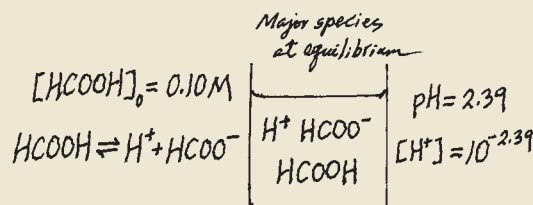 Major species
at equilibrium
[HCOOH]₀ = 0.10M
HCOOH ⇌ H⁺ + HCOO⁻
H⁺ HCOO⁻
HCOOH
pH = 2.39
[H⁺] = 10⁻²·³⁹